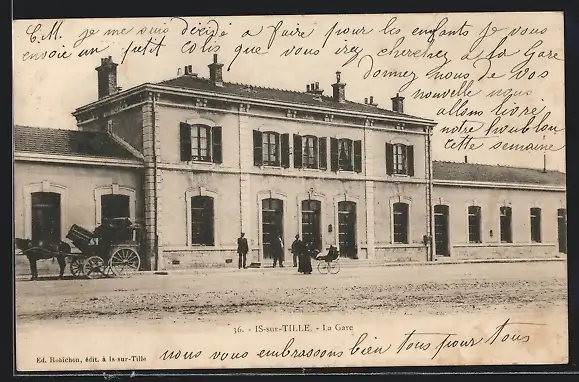 C.M. je me suis décidé a faire pour les enfants je vous
envoie un petit colis que vous irez chercher a la Gare
Donnez nous de vos
nouvelle nous
allons livré
notre houblon
cette semaine
36. - IS-sur-TILLE. - La Gare
Ed. Robichon, édit. à Is-sur-Tille
nous vous embrassons bien tous pour tous